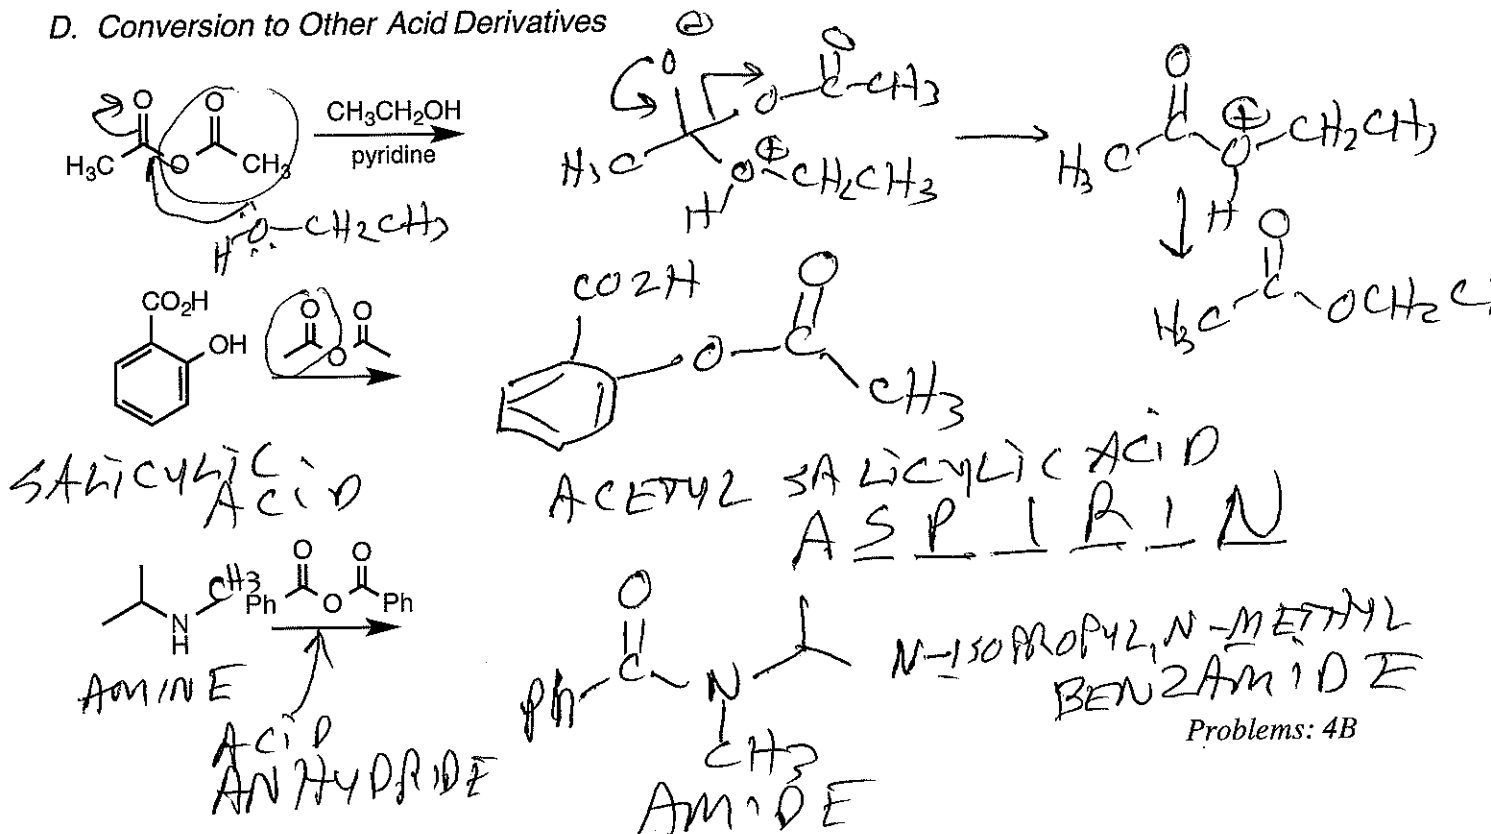 D. Conversion to Other Acid Derivatives
O O
H₃C O CH₃
CH₃CH₂OH
pyridine
H-O-CH2CH3
⊖
O
O-C-CH3
O
H3C
⊕
O-CH2CH3
H
O
H3C C O ⊕ CH2CH3
H
O
H3C C OCH2C
CO₂H
OH
O O
O
CO2H
O-C
O
CH3
SALICYLIC
ACID
ACETYL SALICYLIC ACID
ASPIRIN
N
H
CH3
O O
Ph O Ph
AMINE
ACID
ANHYDRIDE
O
Ph C N
CH3
AMIDE
N-ISOPROPYL, N-METHYL
BENZAMIDE
Problems: 4B